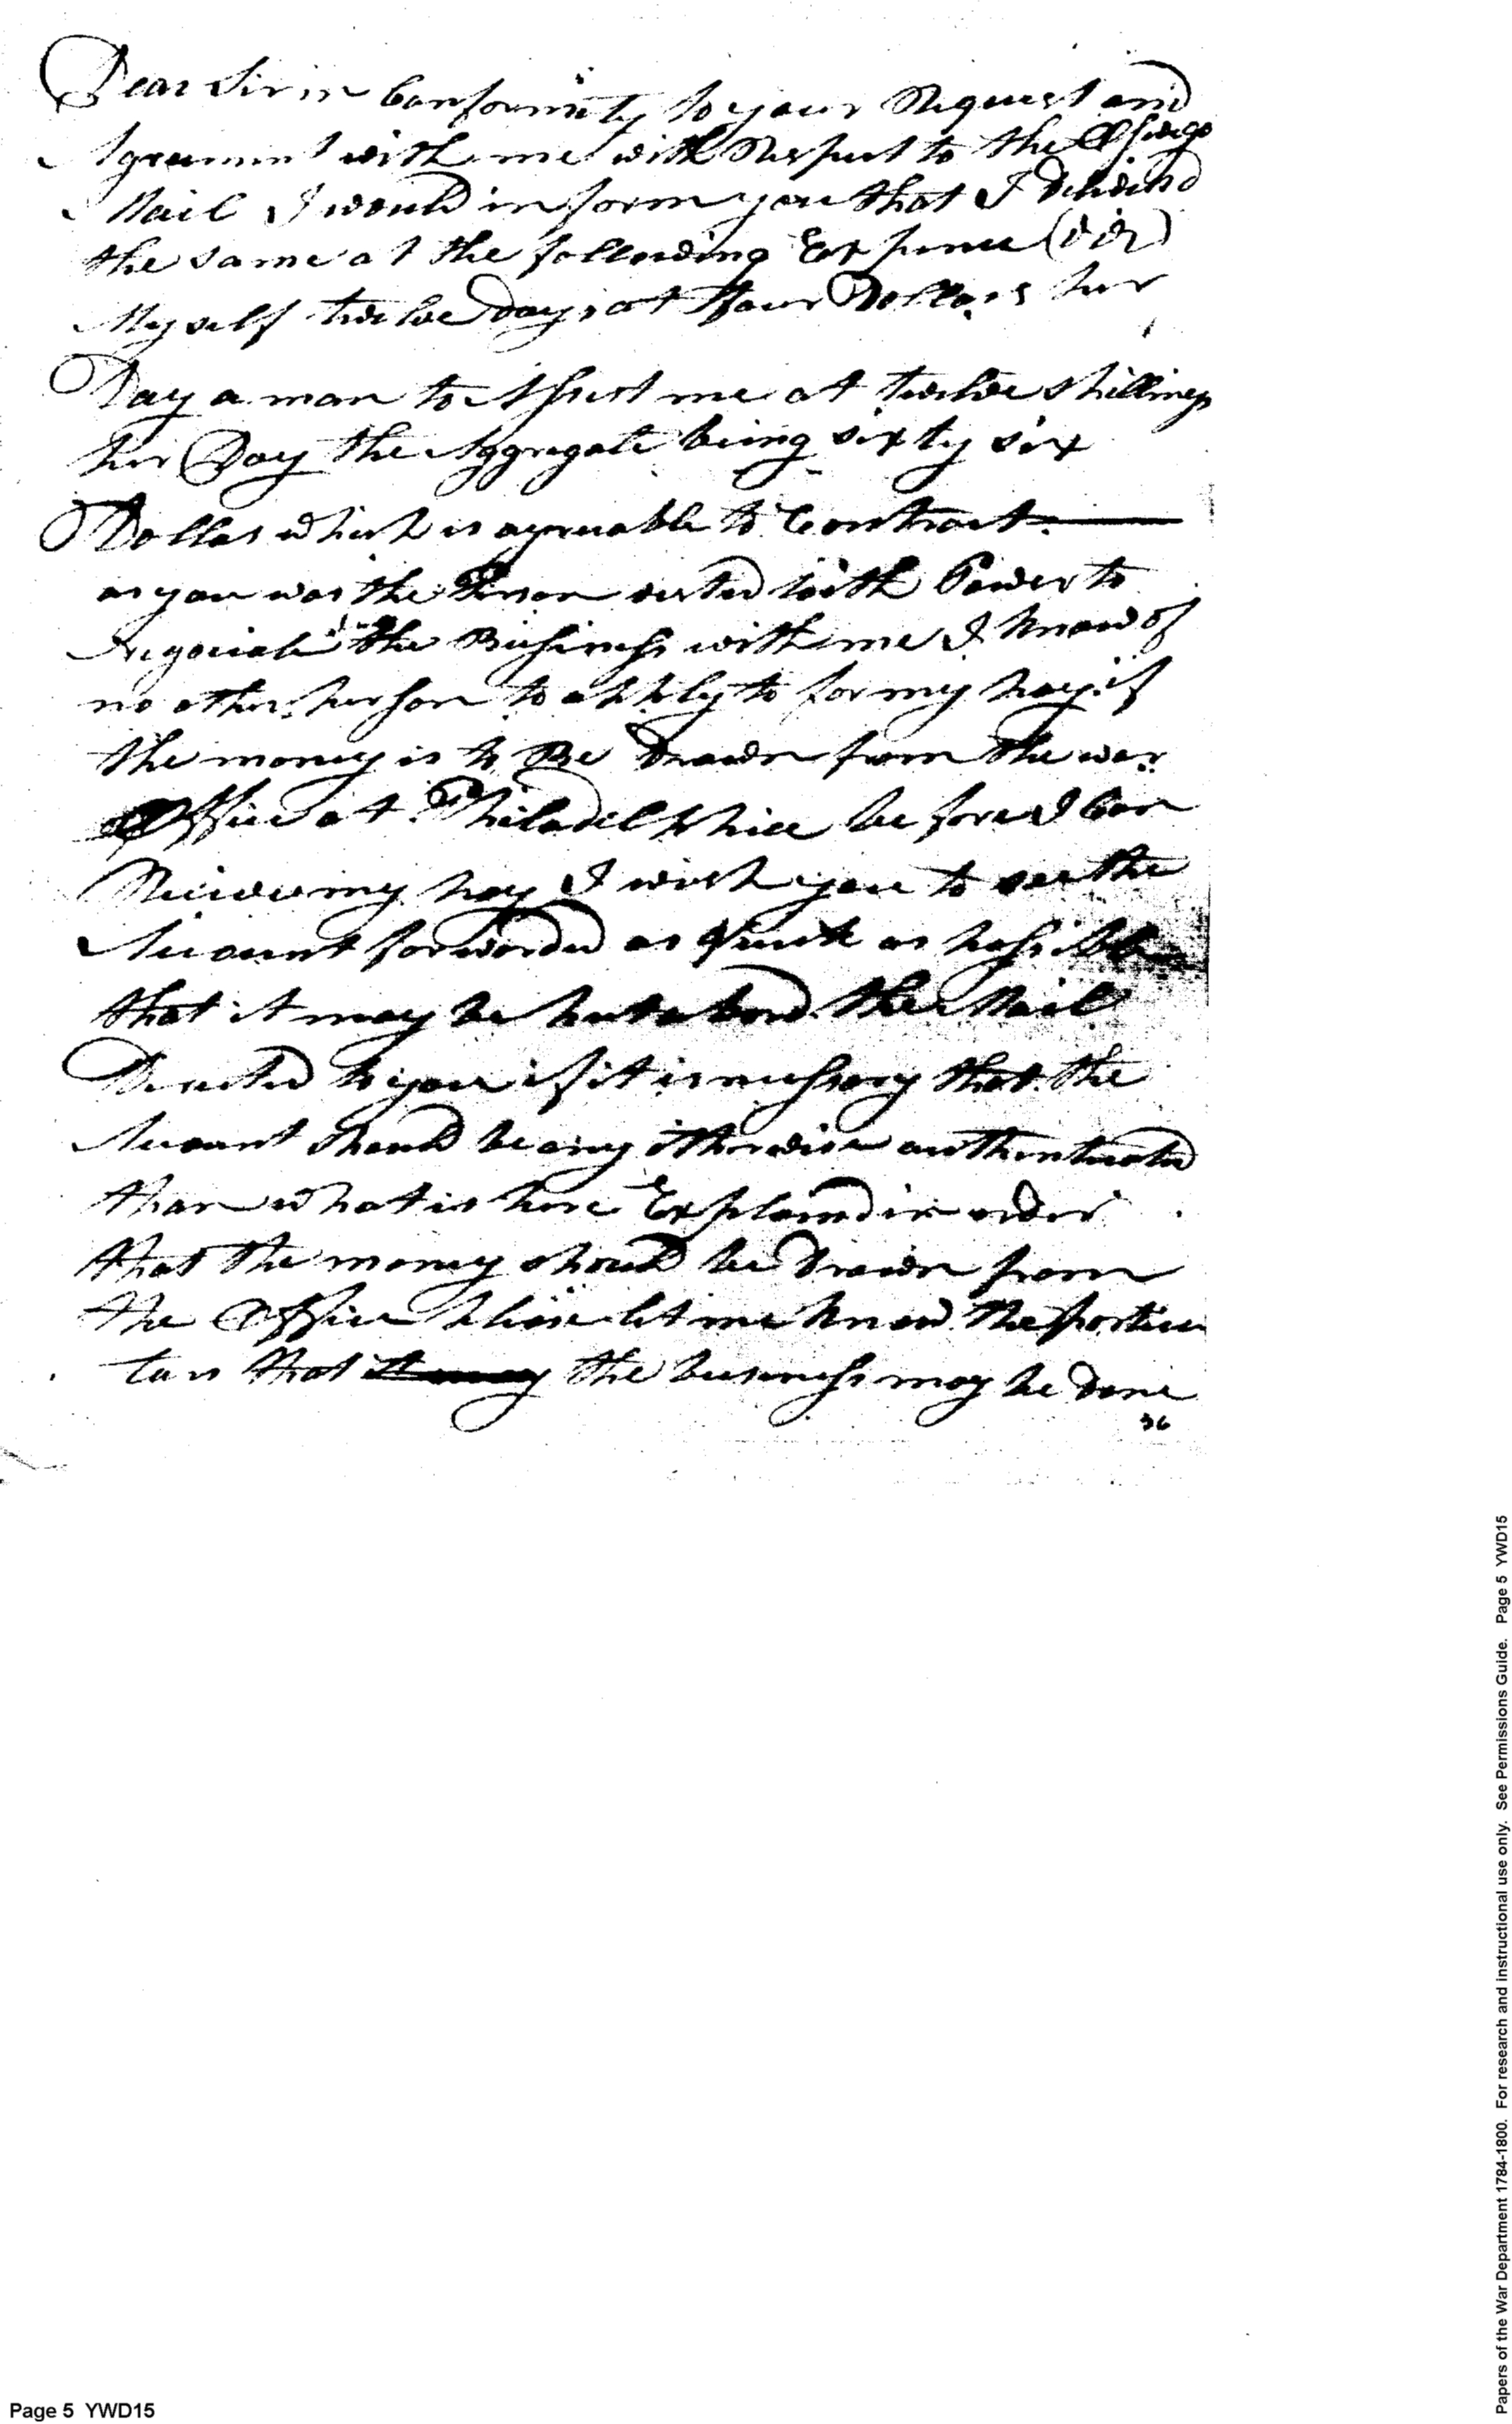 Dear Sir in Conformity to your Request and
Agreement with me with Respect to the Oswego
Mail I would inform you that I Deliverd
the same at the following Expence (viz)
Myself twelve Days at Four Dollars per
Day a man to Assist me at twelve shillings
per Day the Aggregate being sixty six
Dollars which is agreeable to Contract.
as you was the Person vested with Power to
Negociate the Business with me I know of
no other person to apply to for my pay if
the money is to Be Drawn from the war
Office at Philadelphia before I Can
Recieve my pay I wish you to see the
Account forwarded as Quick as possible
that it may be put abord the Mail
Directed to you if it is necessary that the
Account should be any otherwise authenticated
than what is here Explained in order
that the money should be Drawn from
the Office please let me know the particu
lars that it may the business may be Done
36
Page 5 YWD15
Papers of the War Department 1784-1800. For research and instructional use only. See Permissions Guide. Page 5 YWD15